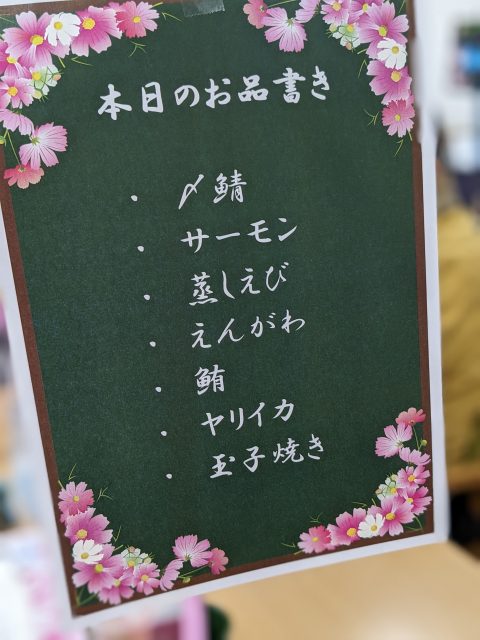 本日のお品書き
・〆鯖
・サーモン
・蒸しえび
・えんがわ
・鮪
・ヤリイカ
・玉子焼き